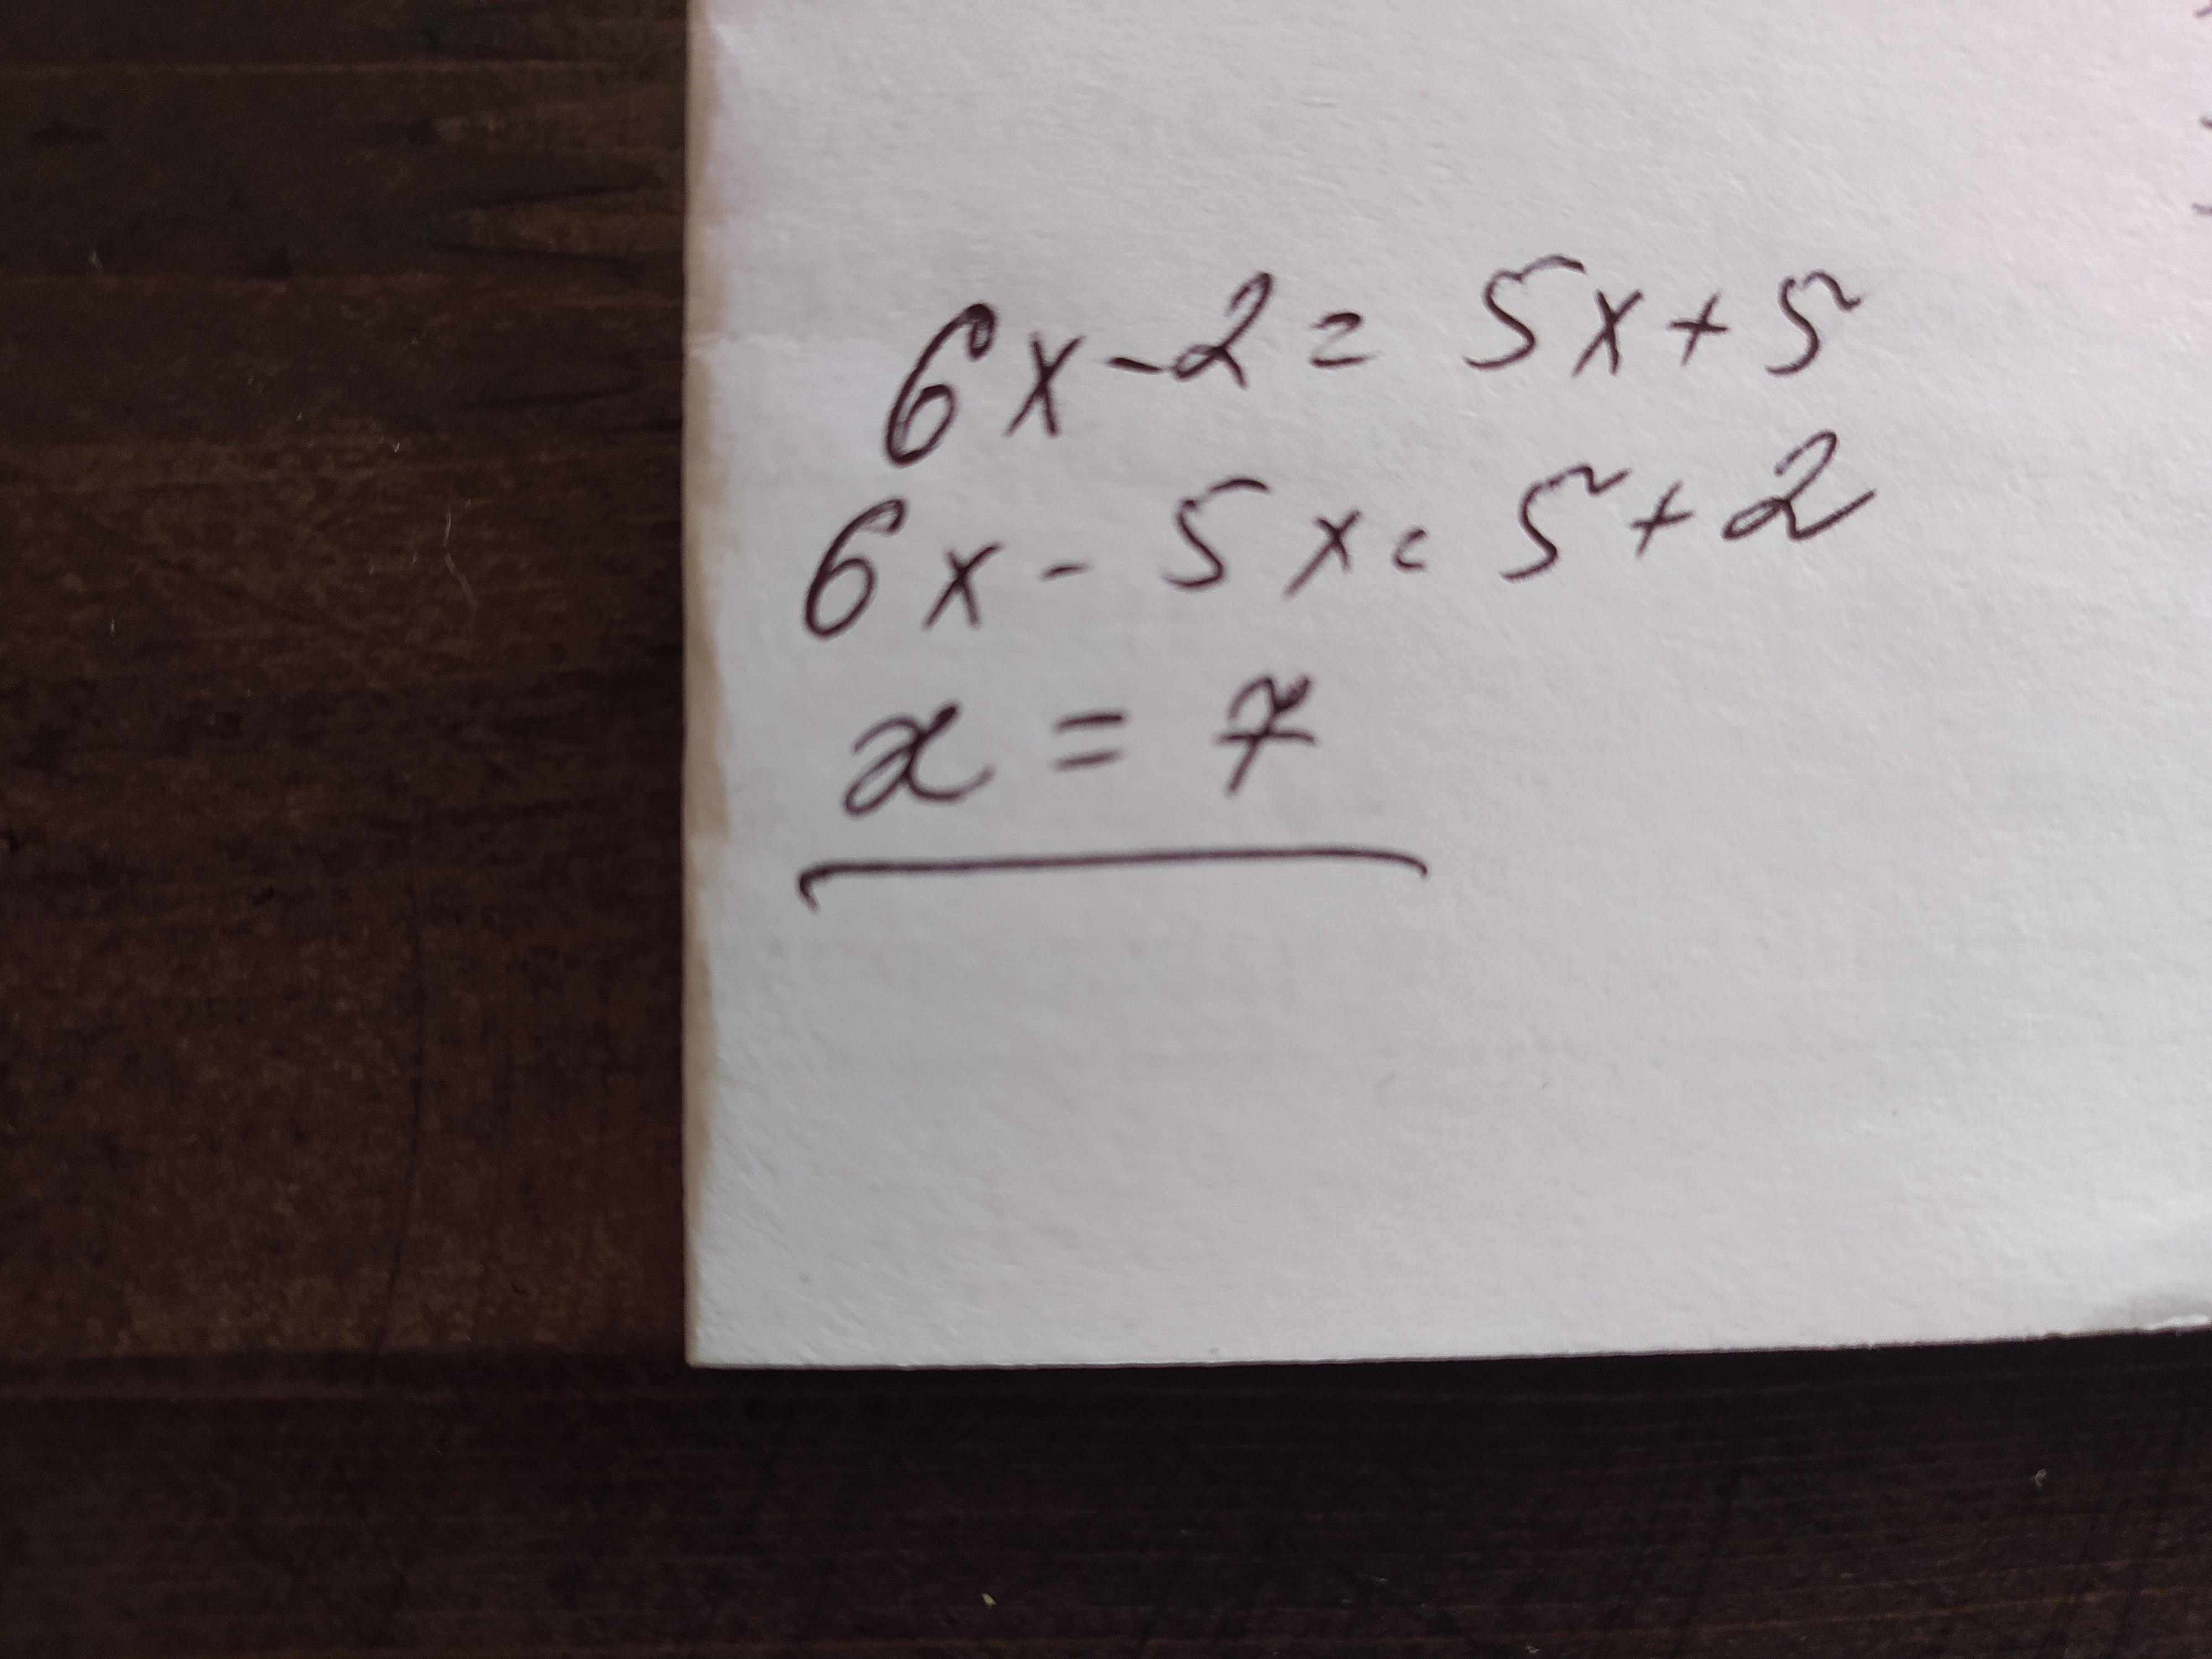 6x-2= 5x+5
6x - 5x= 5+2
x = 7